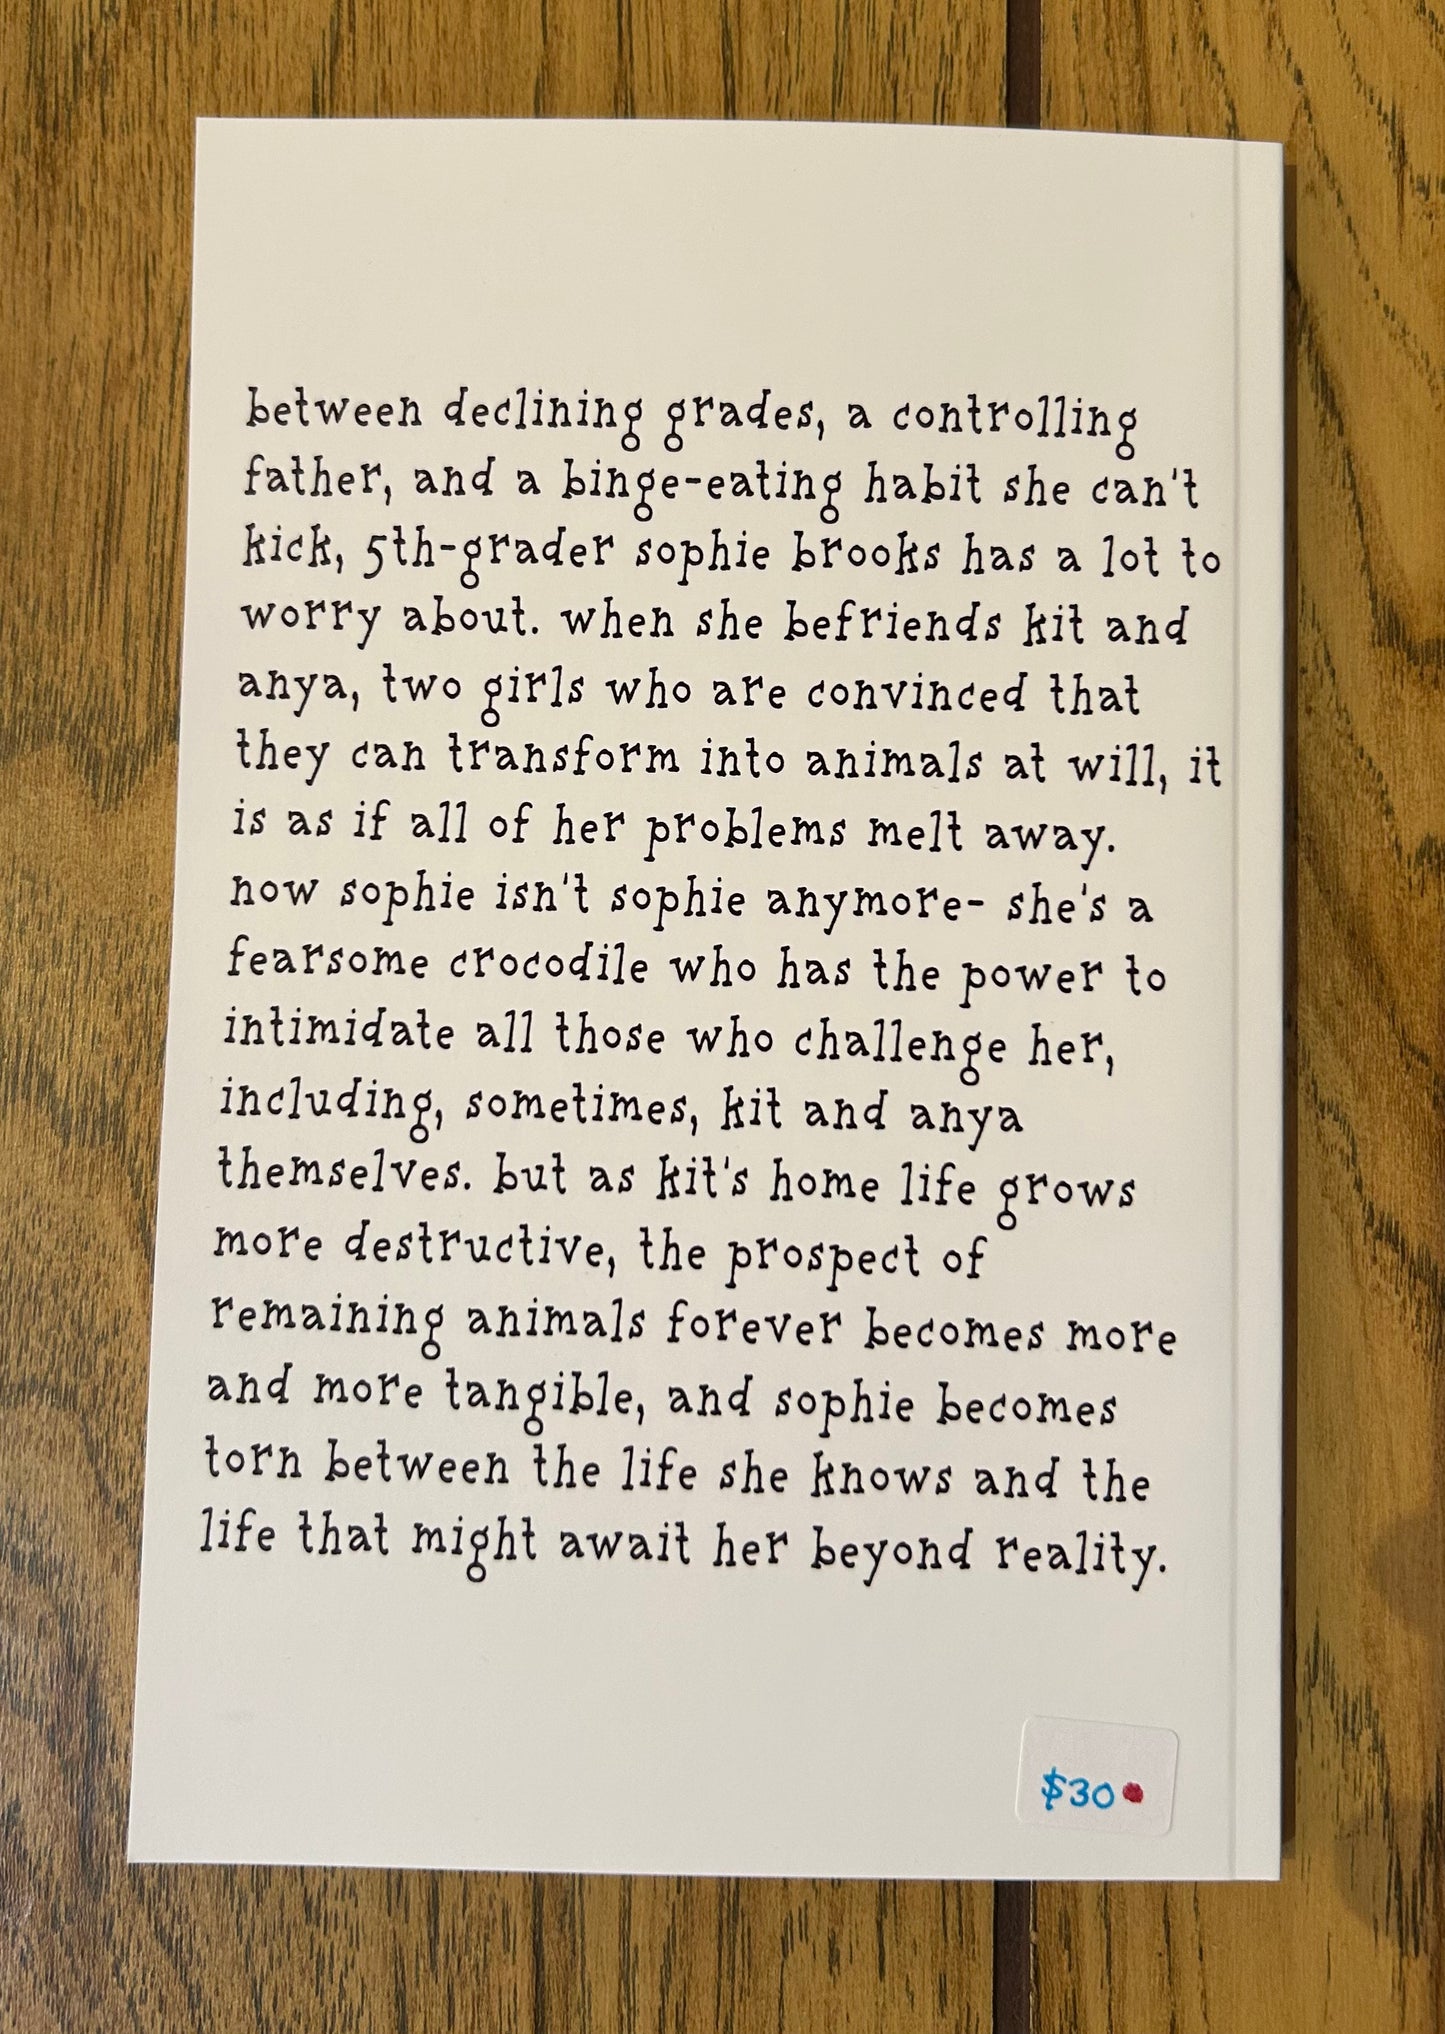 between declining grades, a controlling
father, and a binge-eating habit she can't
kick, 5th-grader sophie brooks has a lot to
worry about. when she befriends kit and
anya, two girls who are convinced that
they can transform into animals at will, it
is as if all of her problems melt away.
now sophie isn't sophie anymore- she's a
fearsome crocodile who has the power to
intimidate all those who challenge her,
including, sometimes, kit and anya
themselves. but as kit's home life grows
more destructive, the prospect of
remaining animals forever becomes more
and more tangible, and sophie becomes
torn between the life she knows and the
life that might await her beyond reality.
$30